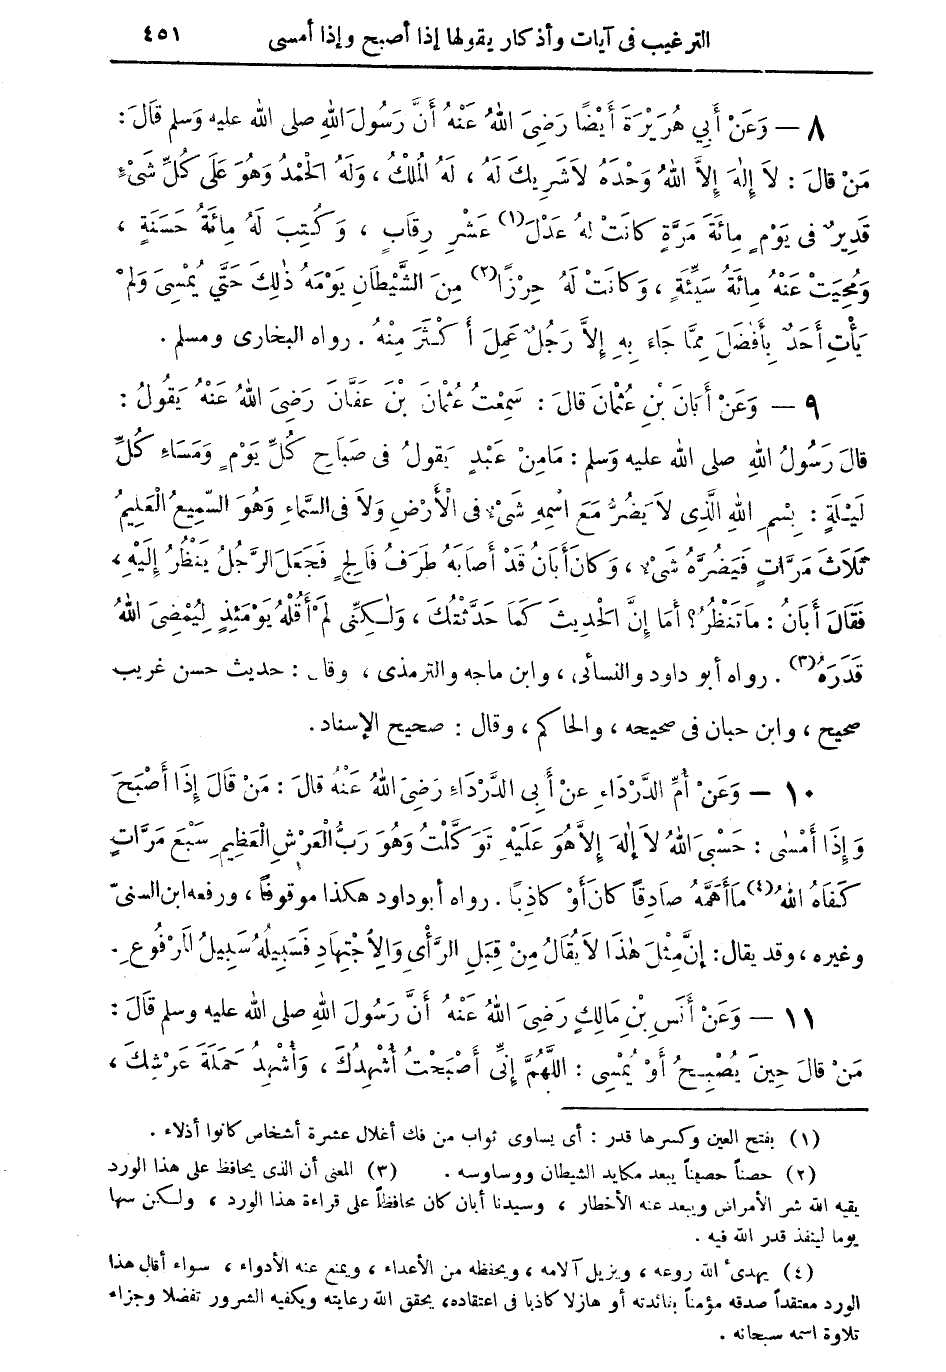 الترغيب فى آيات وأذكار يقولها إذا أصبح وإذا أمسى ٤٥١
٨ — وَعَنْ أَبِي هُرَيْرَةَ أَيْضًا رَضِىَ اللهُ عَنْهُ أَنَّ رَسُولَ اللهِ صلى الله عليه وَسلم قَالَ :
مَنْ قالَ : لاَ إِلٰهَ إِلاَّ اللهُ وَحْدَهُ لاَشَرِيكَ لَهُ ، لَهُ الْمُلْكُ ، وَلَهُ الْحَمْدُ وَهُوَ عَلَى كُلِّ شَىْءٍ
قَدِيرٌ فى يَوْمٍ مِائَةَ مَرَّةٍ كانَتْ لهُ عَدْلَ(١) عَشْرِ رِقَابٍ ، وَكُتِبَ لَهُ مِائَةُ حَسَنَةٍ ،
وَمُحِيَتْ عَنْهُ مِائَةُ سَيِّئَةٍ ، وَكَانَتْ لَهُ حِرْزًا(٢) مِنَ الشَّيْطَانِ يَوْمَهُ ذٰلِكَ حَتَّى يُمْسِىَ وَلَمْ
يَأْتِ أَحَدٌ بِأَفْضَلَ مِمَّا جَاءَ بِهِ إِلاَّ رَجُلٌ عَمِلَ أَكْثَرَ مِنْهُ . رواه البخارى ومسلم .
٩ — وَعَنْ أَبَانَ بْنِ عُثْمَانَ قالَ : سَمِعْتُ عُثْمَانَ بْنَ عَفَّانَ رَضِىَ اللهُ عَنْهُ يَقُولُ :
قالَ رَسُولُ اللهِ صلى الله عليه وَسلم : مَامِنْ عَبْدٍ يَقولُ فى صَبَاحِ كُلِّ يَوْمٍ وَمَسَاءِ كُلِّ
لَيْلَةٍ : بِسْمِ اللهِ الَّذِى لاَ يَضُرُّ مَعَ اسْمِهِ شَىْءٌ فى الْأَرْضِ وَلاَ فى السَّمَاءِ وَهُوَ السَّمِيعُ الْعَلِيمُ
ثَلَاثَ مَرَّاتٍ فَيَضُرَّهُ شَىْءٌ ، وَكانَ أَبَانُ قَدْ أَصَابَهُ طَرَفُ فَالِجٍ فَجَعَلَ الرَّجُلُ يَنْظُرُ إِلَيْهِ ،
فقَالَ أَبَانُ : مَاتَنْظُرُ؟ أَمَا إِنَّ الْحَدِيثَ كَمَا حَدَّثْتُكَ ، وَلٰكِنِّى لَمْ أَقُلْهُ يَوْمَئِذٍ لِيُمْضِىَ اللهُ
قَدَرَهُ(٣) . رواه أبو داود والنسائى ، وابن ماجه والترمذى ، وقال : حديث حسن غريب
صحيح ، وابن حبان فى صحيحه ، والحاكم ، وقال : صحيح الإسناد .
١٠ — وَعَنْ أُمِّ الدَّرْدَاءِ عنْ أَبِى الدَّرْدَاءِ رَضِىَ اللهُ عَنْهُ قالَ : مَنْ قَالَ إِذَا أَصْبَحَ
وَإِذَا أَمْسٰى : حَسْبِىَ اللهُ لاَ إِلٰهَ إِلاَّ هُوَ عَلَيْهِ تَوَكَّلْتُ وَهُوَ رَبُّ الْعَرْشِ الْعَظِيمِ سَبْعَ مَرَّاتٍ
كَفَاهُ اللهُ(٤) مَا أَهَمَّهُ صَادِقًا كانَ أَوْ كاذِبًا . رواه أبو داود هكذا موقوفاً ، ورفعه ابن السنىّ
وغيره ، وقد يقال : إِنَّ مِثْلَ هٰذَا لاَ يُقَالُ مِنْ قِبَلِ الرَّأْىِ وَالِاجْتِهَادِ فَسَبِيلُهُ سَبِيلُ الْمَرْفُوعِ .
١١ — وَعَنْ أَنَسِ بْنِ مَالِكٍ رَضِىَ اللهُ عَنْهُ أَنَّ رَسُولَ اللهِ صلى الله عليه وسلم قَالَ :
مَنْ قالَ حِينَ يُصْبِحُ أَوْ يُمْسِى : اللَّهُمَّ إِنِّى أَصْبَحْتُ أُشْهِدُكَ ، وَأُشْهِدُ حَمَلَةَ عَرْشِكَ ،
(١) بفتح العين وكسرها قدر : أى يساوى ثواب من فك أغلال عشرة أشخاص كانوا أذلاء .
(٢) حصناً حصيناً يبعد مكايد الشيطان ووساوسه . (٣) المعنى أن الذى يحافظ على هذا الورد
يقيه الله شر الأمراض ويبعد عنه الأخطار ، وسيدنا أبان كان محافظاً على قراءة هذا الورد ، ولكن سها
يوما لينفذ قدر الله فيه .
(٤) يهدىء الله روعه ، ويزيل آلامه ، ويحفظه من الأعداء ، ويمنع عنه الأدواء ، سواء أقال هذا
الورد معتقداً صدقه مؤمناً بفائدته أو هازلا كاذبا فى اعتقاده، يحقق الله رعايته ويكفيه الشرور تفضلا وجزاء
تلاوة اسمه سبحانه .